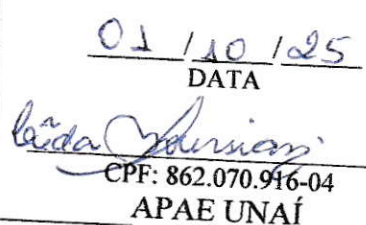 01 / 10 / 25
DATA
CPF: 862.070.916-04
APAE UNAÍ